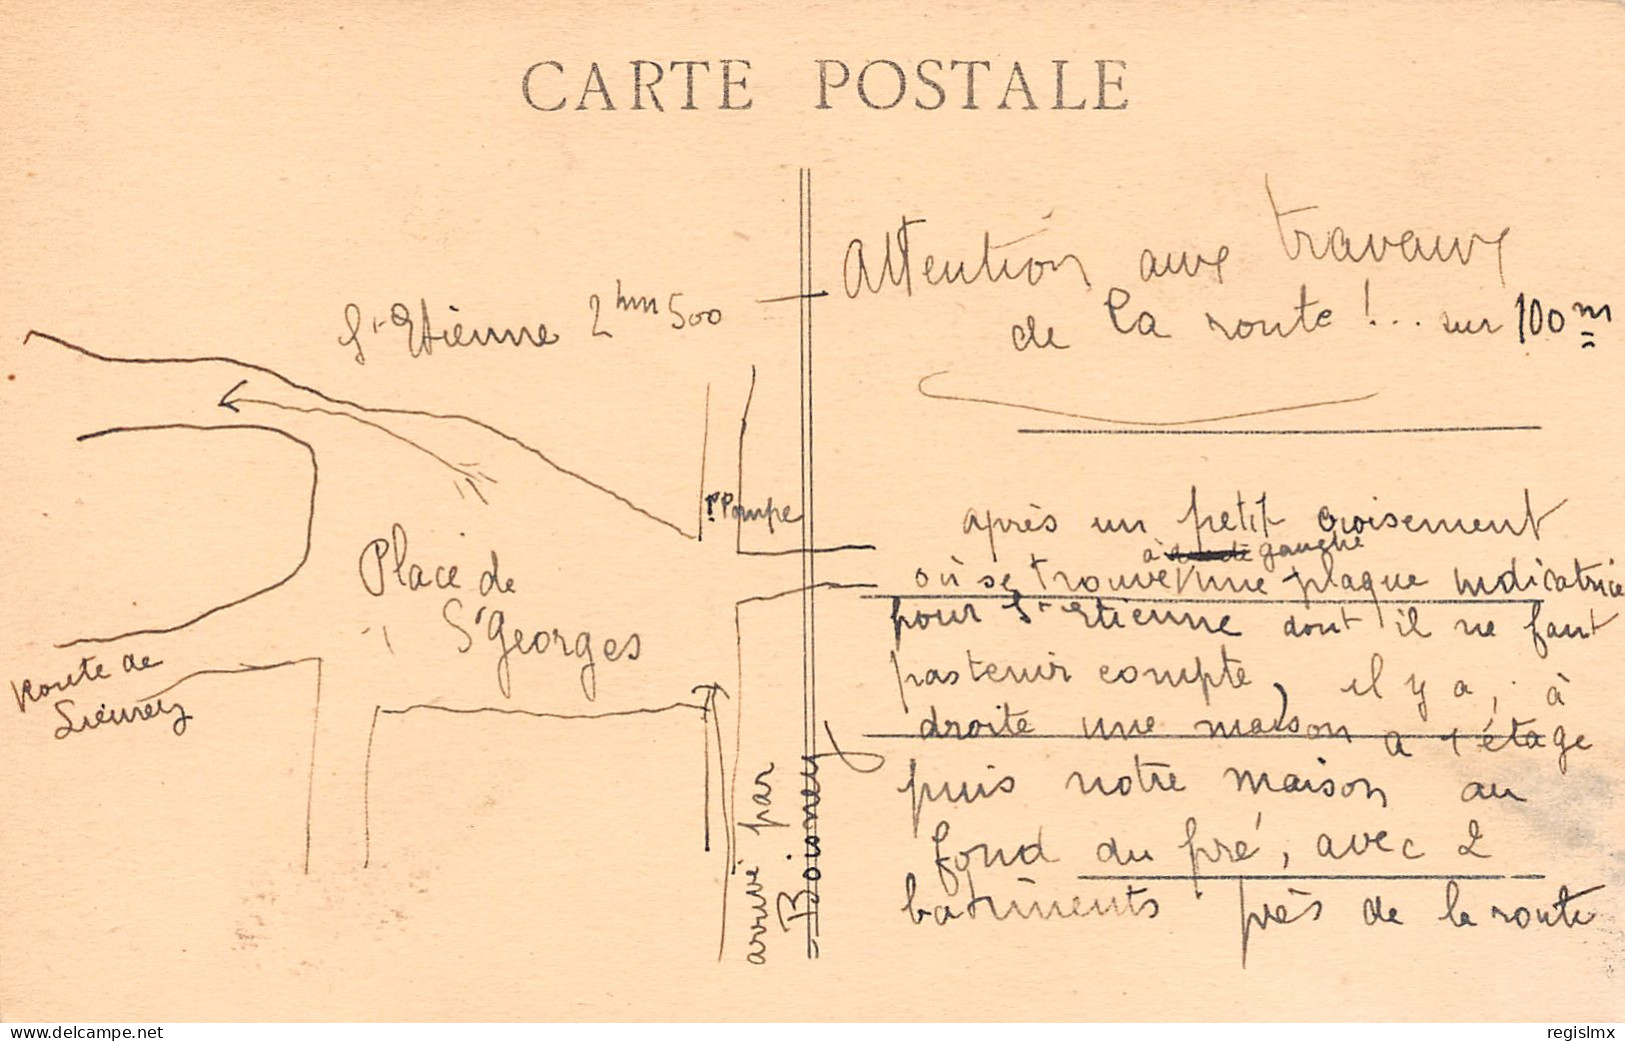 CARTE POSTALE
St Etienne 2 km 500
Pompe
Place de
St Georges
Route de
Lieurey
arrivé par
Boisney
Attention aux travaux
de la route !... sur 100 m
après un petit croisement
à gauche
où se trouve une plaque indicatrice
pour St Etienne dont il ne faut
pas tenir compte, il y a, à
droite une maison a 1 étage
puis notre maison au
fond du pré, avec 2
batiments près de la route
www.delcampe.net
regislmx